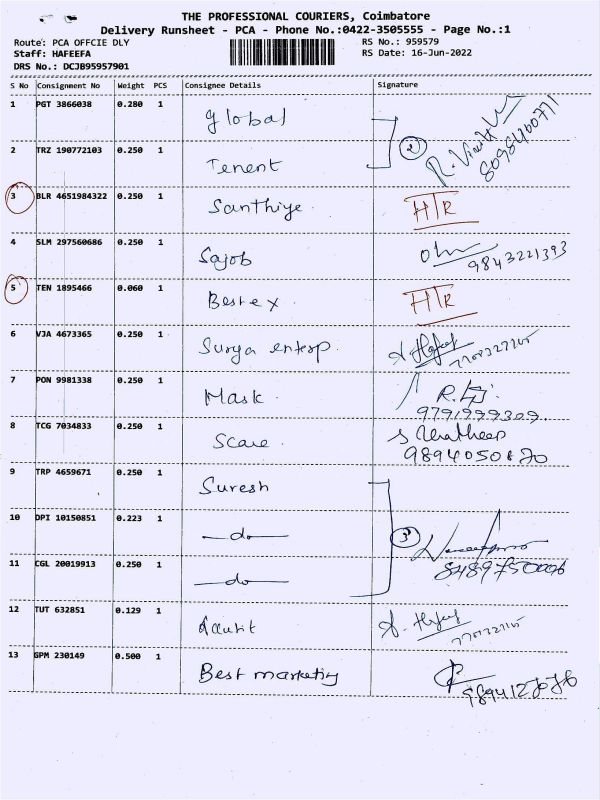 THE PROFESSIONAL COURIERS, Coimbatore
Delivery Runsheet - PCA - Phone No.:0422-3505555 - Page No.:1
Route: PCA OFFCIE DLY
RS No.: 959579
Staff: HAFEEFA
RS Date: 16-Jun-2022
DRS No.: DCJB95957901
S No Consignment No Weight PCS Consignee Details Signature
1 PGT 3866038 0.280 1 global
2 TRZ 190772103 0.250 1 Tenent
2
8098400771
3 BLR 4651984322 0.250 1 Santhiye HTR
4 SLM 297560686 0.250 1 Sajob 9843221393
5 TEN 1895466 0.060 1 Bestex HTR
6 VJA 4673365 0.250 1 Surya enterp.
7 PON 9981338 0.250 1 Mask
9791999309
8 TCG 7034833 0.250 1 Scare
9 TRP 4659671 0.250 1 Suresh
10 DPI 10150851 0.223 1 —do—
3
11 CGL 20019913 0.250 1 —do—
12 TUT 632851 0.129 1
13 GPM 230149 0.500 1 Best marketing